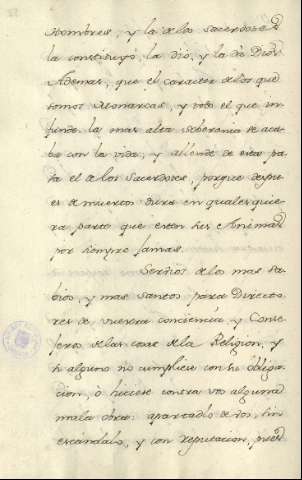 Hombres, y la de los Sacerdotes
la constituyó, la dió, y la dá Dios
Ademas, que el caracter de los que
somos Monarcas, y todo el que in-
funde la mas alta Soberania se aca-
ba con la vida, y allende de esto pa-
sa el de los Sacerdotes, porque despu-
es de muertos dura en qualesquie-
ra parte que esten sus Animas
por siempre jamas.
Servios de los mas sa-
bios, y mas santos para Directo-
res de vuestra conciencia, y Conse-
jeros de las cosas de la Religion, y
si alguno no cumpliese con su obliga-
cion, ó hiciese contra vos alguna
mala obra: apartadlo de vos, sin
escandalo, y con reputacion, pues